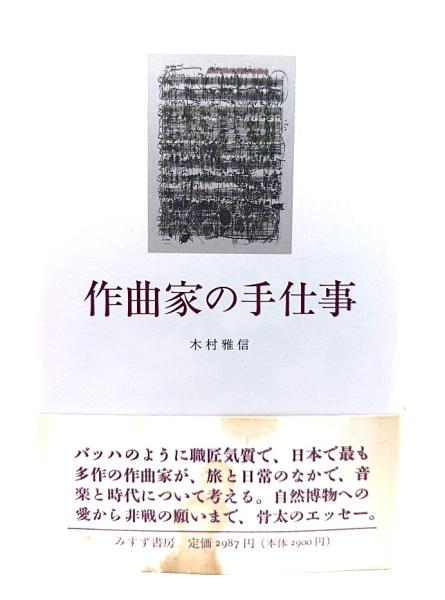 作曲家の手仕事
木村雅信
バッハのように職匠気質で、日本で最も
多作の作曲家が、旅と日常のなかで、音
楽と時代について考える。自然博物への
愛から非戦の願いまで、骨太のエッセー。
みすず書房 定価2987円（本体2900円）